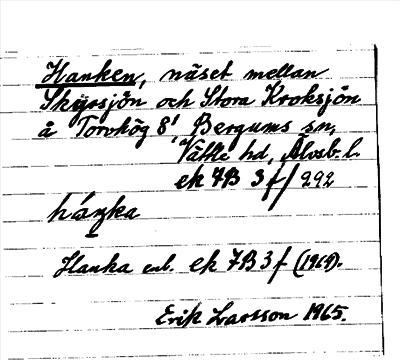 Hanken, näset mellan
Skyrsjön och Stora Kroksjön
å Torvhög 8¹, Bergums sn,
Vättle hd, Älvsb. l.
ek 7B 3f/292
háŋka
Hanka enl. ek 7B 3f (1961).
Erik Larsson 1965.